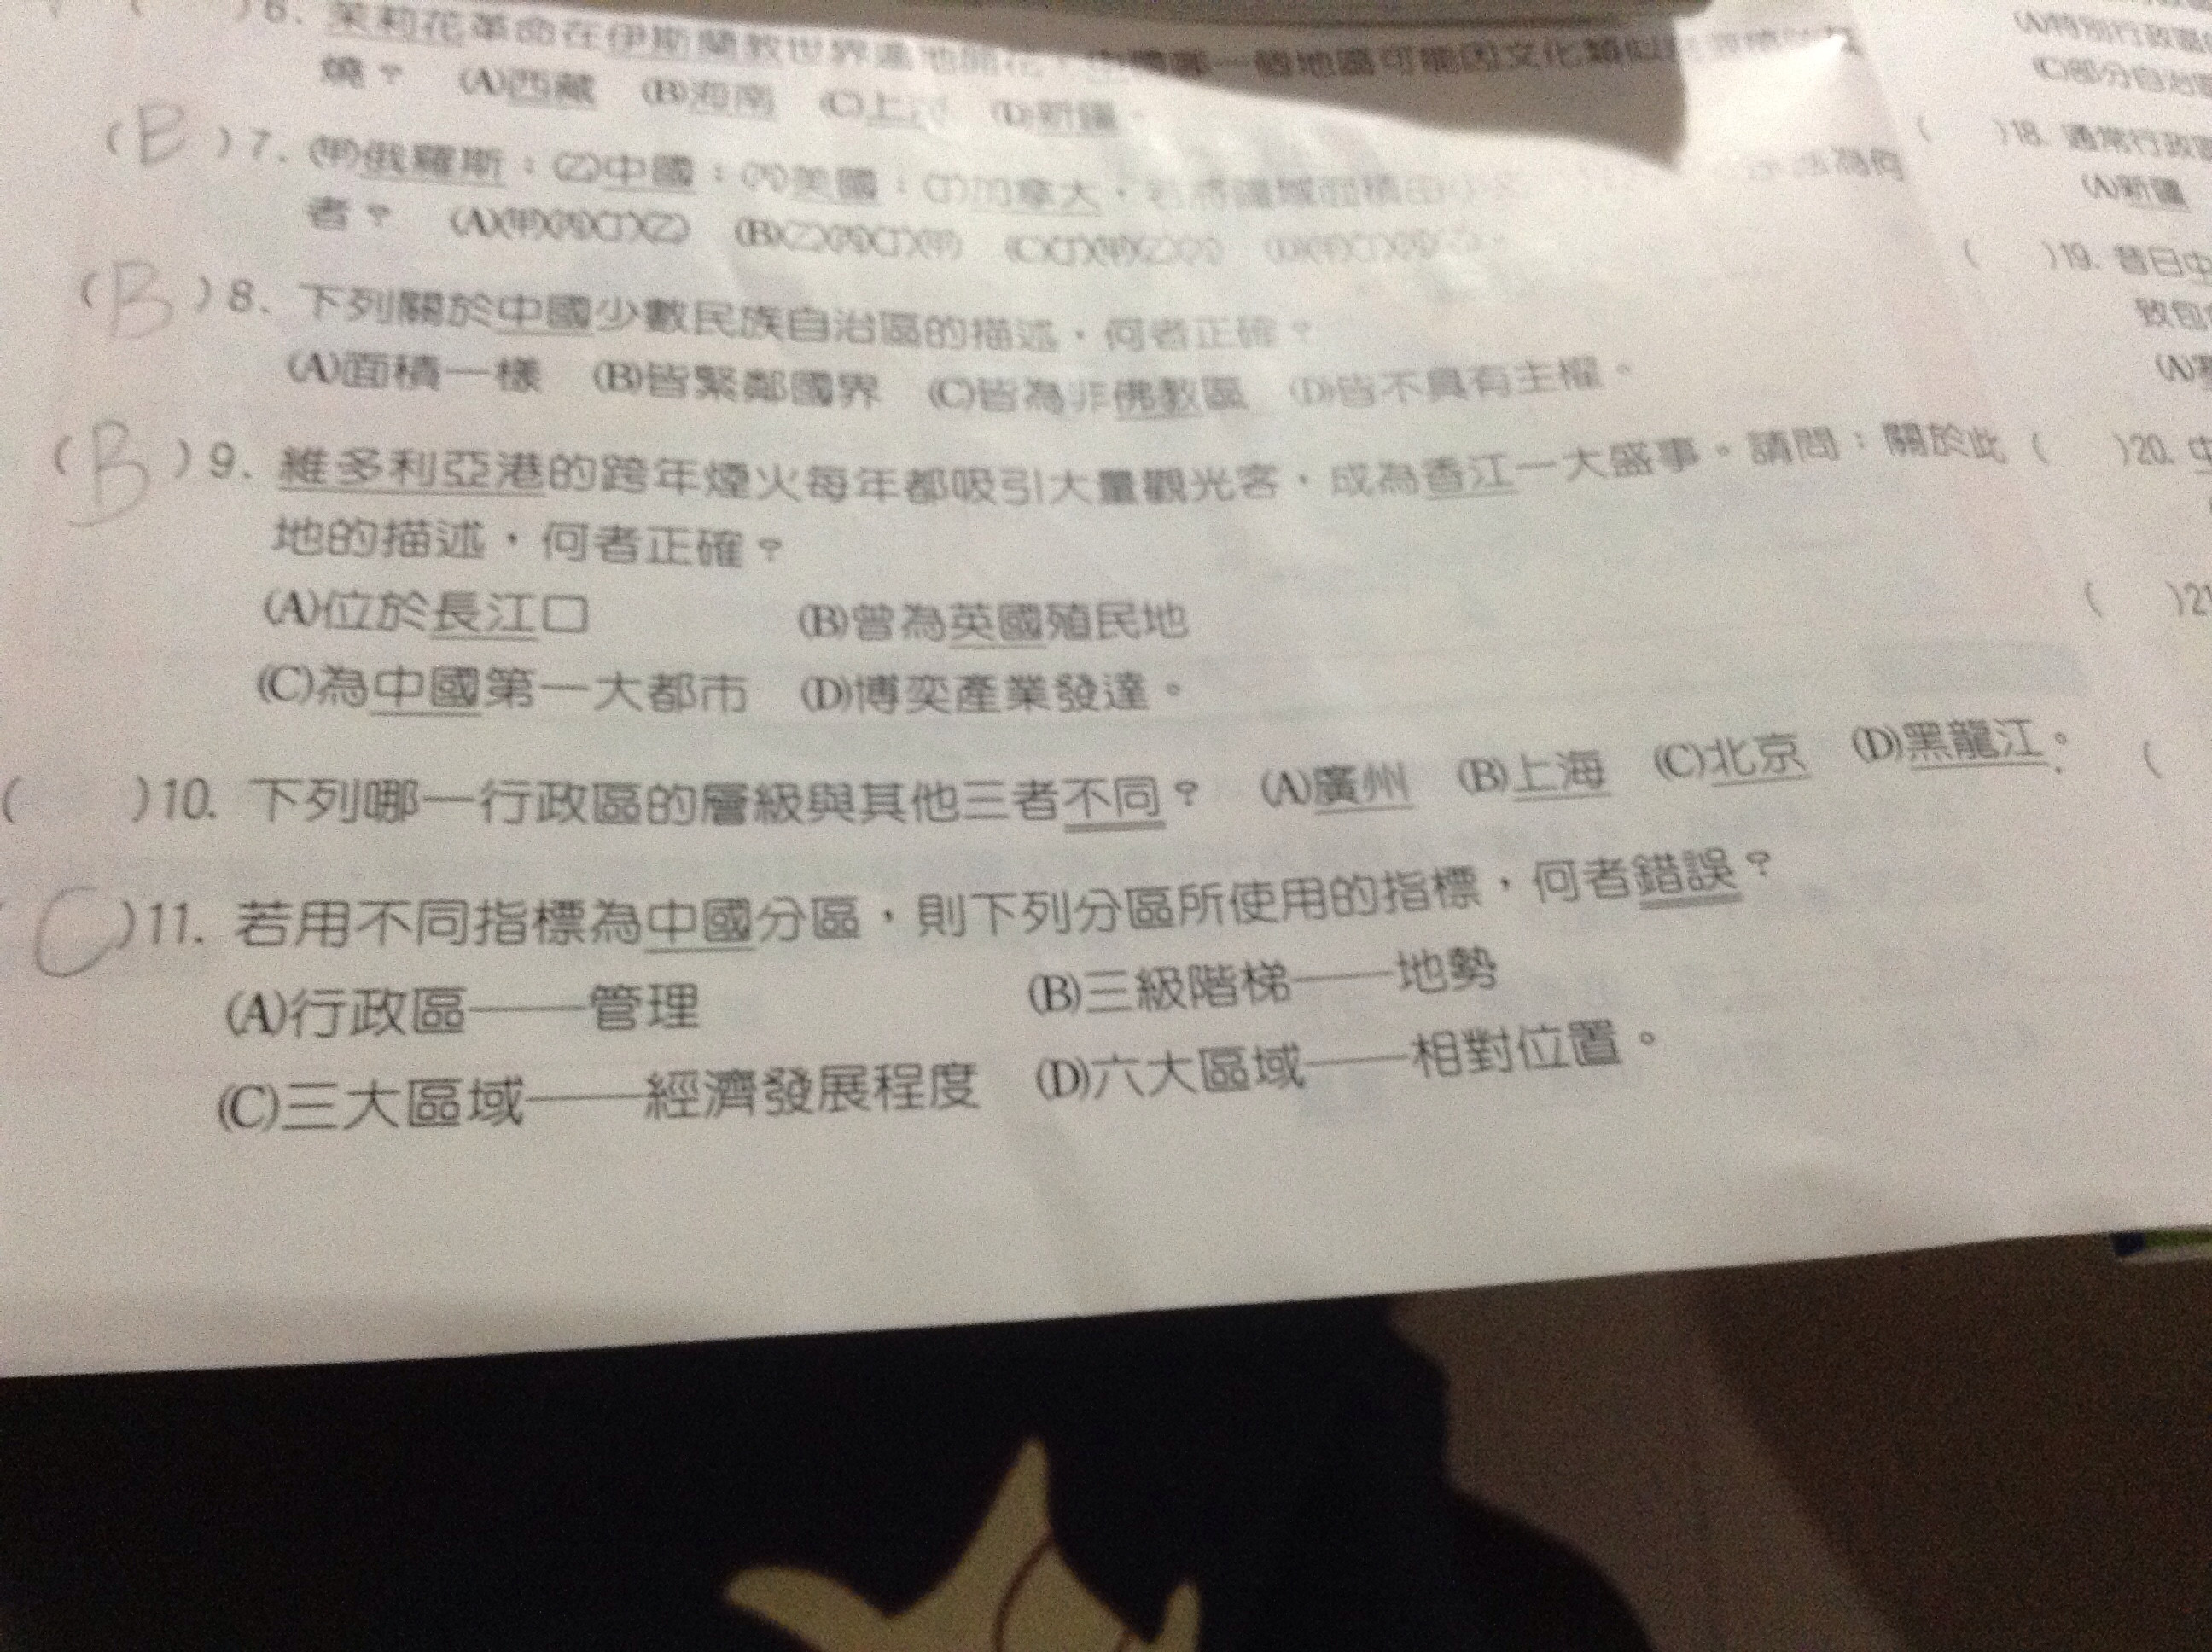 ( )6. 茉莉花革命在伊斯蘭教世界遍地開花，中國哪一個地區可能因文化類似
燒？ (A)西藏 (B)海南 (C)上海 (D)新疆。
(B)7. (甲)俄羅斯；(乙)中國；(丙)美國；(丁)加拿大，若將疆域面積由小 為何
者？ (A)(甲)(丙)(丁)(乙) (B)(乙)(丙)(丁)(甲) (C)(丁)(甲)(乙)(丙) (D)(甲)(丁)(丙)(乙)。
(B)8. 下列關於中國少數民族自治區的描述，何者正確？
(A)面積一樣 (B)皆緊鄰國界 (C)皆為非佛教區 (D)皆不具有主權。
(B)9. 維多利亞港的跨年煙火每年都吸引大量觀光客，成為香江一大盛事。請問：關於此
地的描述，何者正確？
(A)位於長江口 (B)曾為英國殖民地
(C)為中國第一大都市 (D)博奕產業發達。
( )10. 下列哪一行政區的層級與其他三者不同？ (A)廣州 (B)上海 (C)北京 (D)黑龍江。
(C)11. 若用不同指標為中國分區，則下列分區所使用的指標，何者錯誤？
(A)行政區——管理 (B)三級階梯——地勢
(C)三大區域——經濟發展程度 (D)六大區域——相對位置。
(A)特別行政區
(C)部分自治區
( )18. 通常行政區
(A)新疆
( )19. 昔日中
致包
(A)
( )20. 中
( )21
(